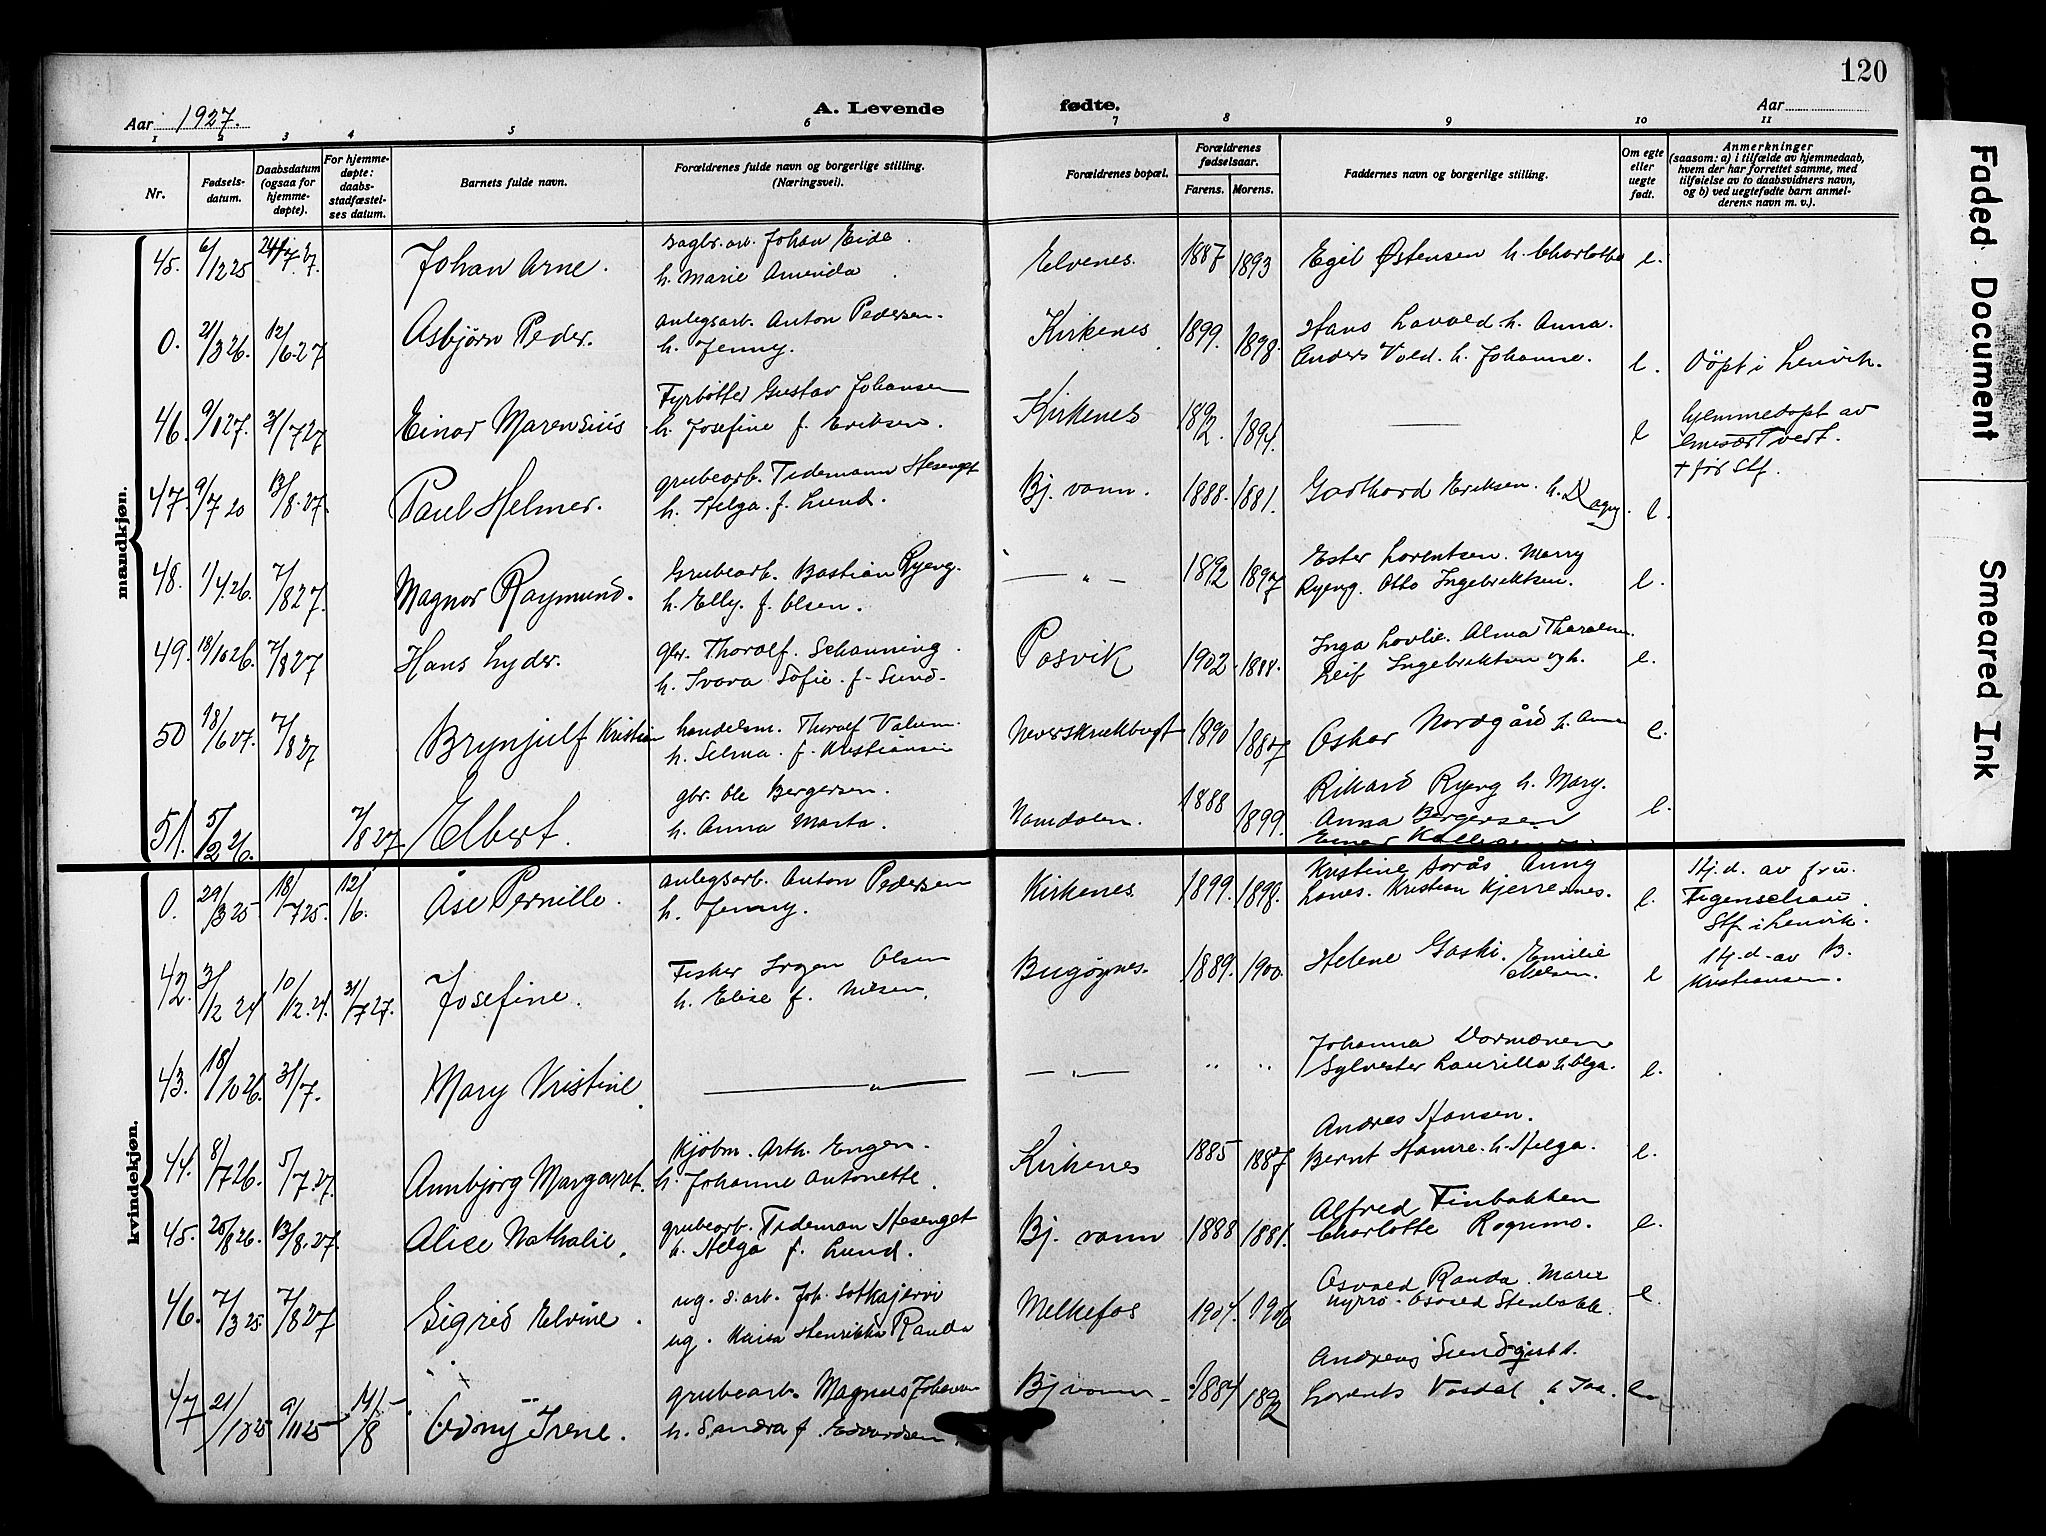 120
Aar 1927.
A. Levende fødte.
Aar
1 2 3 4 5 6 7 8 9 10 11
Nr.
Fødsels-
datum.
Daabsdatum
(ogsaa for
hjemme-
døpte).
For hjemme-
døpte:
daabs-
stadfæstel-
ses datum.
Barnets fulde navn.
Forældrenes fulde navn og borgerlige stilling.
(Næringsvei).
Forældrenes bopæl.
Forældrenes
fødselsaar.
Farens. Morens.
Faddernes navn og borgerlige stilling.
Om egte
eller
uegte
født.
Anmerkninger
(saasom: a) i tilfælde av hjemmedaab,
hvem der har forrettet samme, med
tilføielse av to daabsvidners navn,
og b) ved uegtefødte barn anmel-
derens navn m. v.).
mandkjøn.
45. 6/12 25 Johan Arne. sagbr. arb. Johan Eide.
h. Marie Aminda
Elvenes. 1887 1893 Egil Østensen h. Charlotte e.
0. 21/3 26. 12/6 27 Asbjørn Peder. anlegsarb. Anton Pedersen.
h. Jenny.
Kirkenes 1899. 1898. Hans Lavold. h. Anna.
Anders Vold. h. Johanne. e. Døpt i Lenvik.
46. 9/1 27. 31/7 27 Einar Marensius Fyrbøter Gustav Johansen
h. Josefine f. Eriksen.
Kirkenes 1892. 1894. e hjemmedøpt av
emisær Tvert.
+ før Stf.
47. 9/7 20 13/8. 27. Paul Helmer. grubearb. Tidemann Hesenget
h. Helga. f. Lund.
Bj. vann. 1888. 1881. Gothard Eriksen. h. Dagny. e.
48. 1/4 26. 7/8 27. Magnor Raymund. Grubearb. Bastian Ryeng.
h. Elly. f. Olsen.
— „ — 1892 1897 Ester Lorentsen. Marry
Ryeng. Otto Ingebriktsen. e.
49. 18/10 26. 7/8 27 Hans Lyder. gbr. Thoralf. Schanning.
h. Svara Sofie. f. Sund.
Pasvik 1902. 1888. Inga Lovlie. Alma
Leif Ingebriktsen og h. e.
50 18/6 07. 7/8 27 Brynjulf Kristian handelsm. Thoralf
h. Selma. f. Kristiansen
1890 1887 Oskar Nordgård h. Anna e.
51. 5/2 26. 7/8 27 Elbert. gbr. Ole Bergersen.
h. Anna Marta.
Namdalen. 1888 1899. Rikard Ryeng h. Mary.
Anna Bergersen
Einar e.
kvindekjøn.
0. 29/3 25 18/7 25. 12/6. Åse Pernille. anlegsarb. Anton Pedersen
h. Jenny.
Kirkenes 1899. 1898. Kristine Anny
Kristian e. Hj. d. av fru.
Figenschau.
Stf i Lenvik.
42. 3/12 24 10/12. 24. 31/7 27. Josefine. Fisker Olsen
h. Elise f. Nilsen.
Bugøynes. 1889. 1900. Helene Gaski. Emilie
Nilsen. e Hj. d. av B.
Kristiansen.
43. 18/10 26. 31/7. Mary Kristine — „ —
— „ — „ „ Johanna Dormænen
Sylvester Laurilla h. Olga. e.
44. 8/7 26. 5/7. 27. Annbjørg Margaret. Kjøbm. Arth. Engen.
h. Johanne Antonette.
Kirkenes 1885 1887 Andreas Hansen.
Bernt Hamre. h. Helga. e.
45. 20/8 26. 13/8. 27. Alice Nathalie. grubearb. Tideman Hesenget
h. Helga f. Lund.
Bj. vann 1888 1881. Alfred Finbakken
Charlotte Rognmo. e.
46. 7/3 25. 7/8 27 Sigrid Elvine. ug. s. arb. Joh. Sotkajervi
ug. Kaisa Henrikka Randa
Melkefos 1904. 1906 Osvald Randa. Marie
e.
47 21/10 25 9/11 25 14/8 Odny Irene. grubearb. Magnus Johansen
h. Sandra f. Edvardsen.
Bj vann 1884 1892 Andreas Sundqvist.
Lorents Vosdal. e.
Faded Document
Smeared Ink